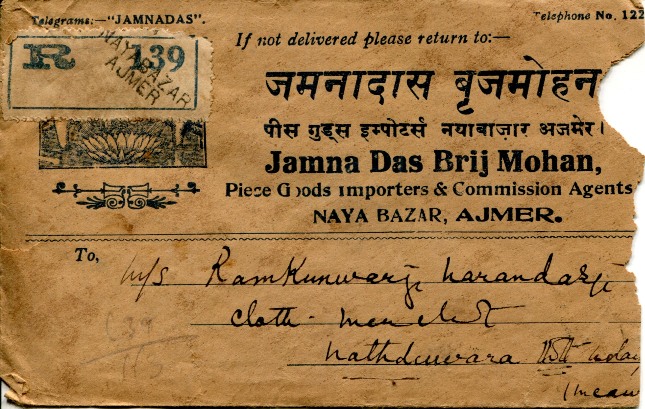 Telegrams:—"JAMNADAS".
Telephone No. 122
R 139
NAYA BAZAR
AJMER
If not delivered please return to:—
जमनादास बृजमोहन
पीस गुड्स इम्पोटर्स नयाबाज़ार अजमेर।
Jamna Das Brij Mohan,
Piece Goods Importers & Commission Agents
NAYA BAZAR, AJMER.
To,
M/s Ramkunwarji Narandasji
Cloth Merchant
Nathduwara